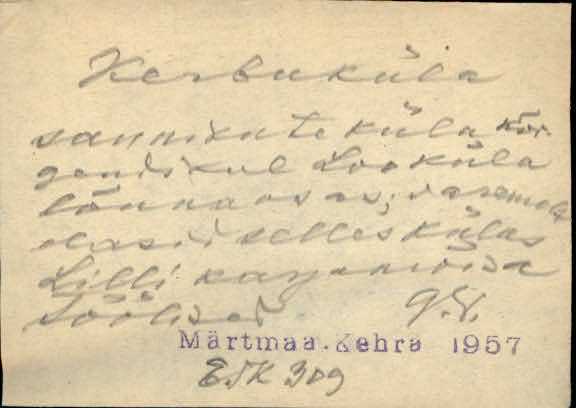 Kerbuküla
sannikute küla kõr-
gendikul Looküla
lõunaosas; varemalt
elasid selles külas
Lilli karjamõisa
töölised. J.V.
Märtmaa.Kehra 1957
ETK 309